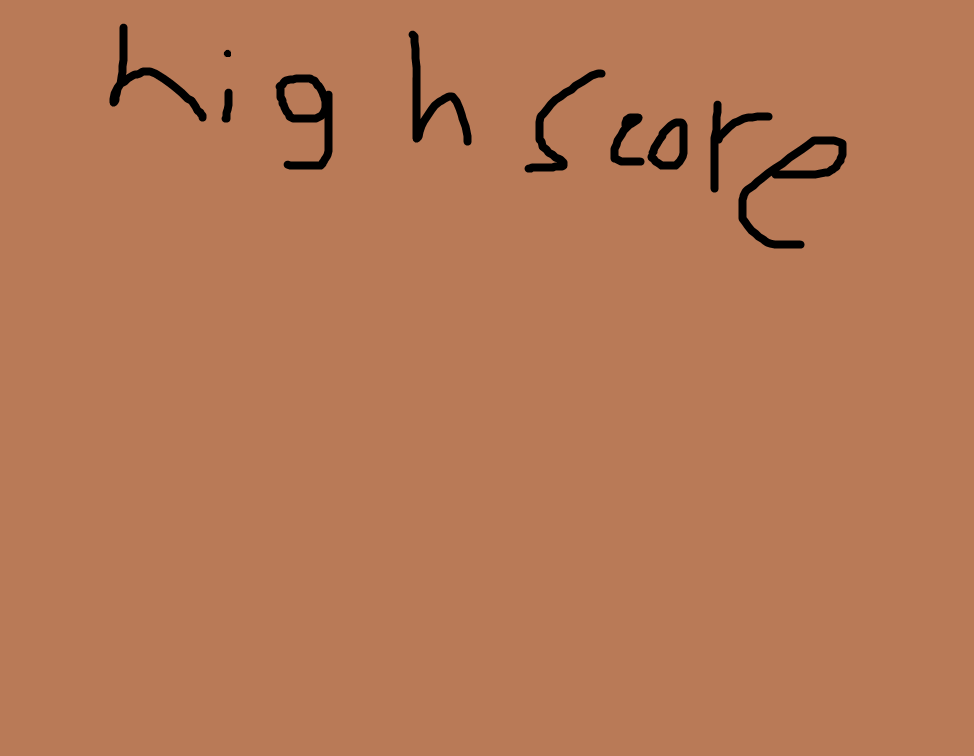 high score